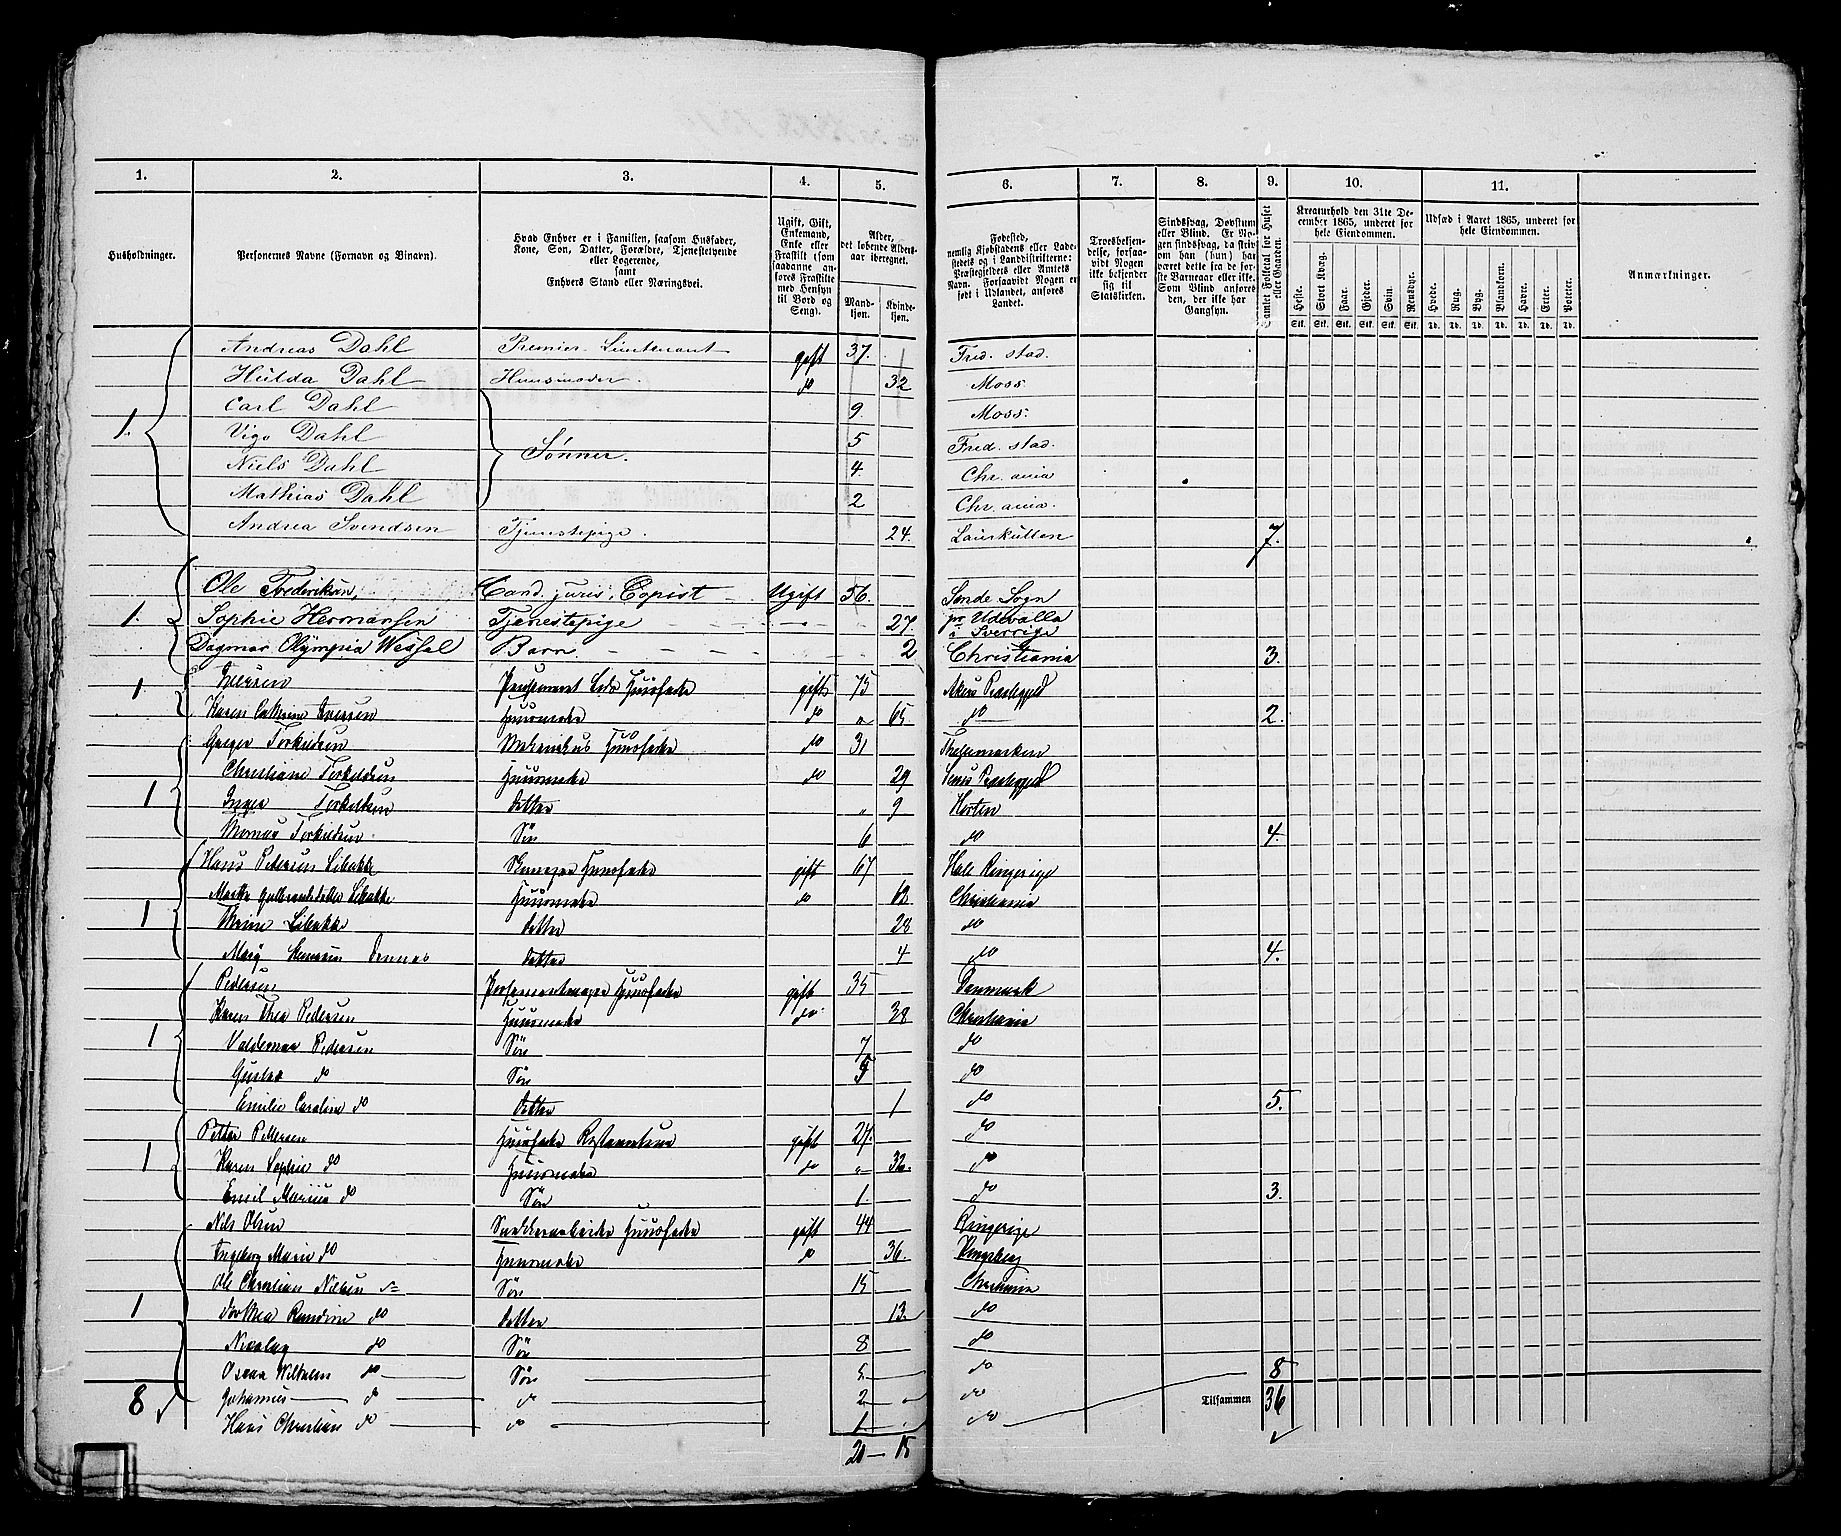 1. 2. 3. 4. 5. 6. 7. 8. 9. 10. 11.
Husholdninger. Personernes Navne (Fornavn og Binavn). Hvad Enhver er i Familien, saasom Husfader, Kone, Søn, Datter, Forældre, Tjenestetyende eller Logerende, samt Enhvers Stand eller Næringsvei. Ugift, Gift, Enkemand, Enke eller Fraskilt (som saadanne anføres Fraskilte med Hensyn til Bord og Seng). Alder, det løbende Aldersaar iberegnet. Mandkjøn. Kvindekjøn. Fødested, nemlig Kjøbstadens eller Ladestedets og i Landdistrikterne: Præstegjeldets eller Amtets Navn. Forsaavidt Nogen er født i Udlandet, anføres Landet. Troesbekjendelse, forsaavidt Nogen ikke bekjender sig til Statskirken. Sindssvag, Døvstum eller Blind. Er Nogen sindssvag, da skriv om han (hun) har været dette fra de første Barneaar eller ikke. Som Blind anføres den, der ikke har Gangsyn. Samlet Folketal for Huset eller Gaarden. Kreaturhold den 31te December 1865, underet for hele Eiendommen. Udsæd i Aaret 1865, underet for hele Eiendommen. Anmærkninger.
Heste. Stort Kvæg. Faar. Gjeder. Svin. Rensdyr. Hvede. Rug. Byg. Blandkorn. Havre. Erter. Poteter.
Stk. Stk. Stk. Stk. Stk. Stk. Td. Td. Td. Td. Td. Td. Td.
Andreas Dahl Premier-Lieutenant gift 37. Fred. stad.
Hulda Dahl Huusmoder. do 32 Moss
Carl Dahl 9. Moss.
1. Vigo Dahl Sønner. 5 Fred. stad.
Niels Dahl 4. Chr. ania
Mathias Dahl 2 Chr. ania.
Andrea Svendsen Tjenestepige. 24. 7.
Ole Frederiksen, Cand. juris, Copist Ugift 56. Sende Sogn
1. Sophie Hermansen Tjenestepige 27. pr Udevalla i Sverrige
Dagmar Olÿmpia Wessel Barn 2 Christiania 3.
1 Iversen Huusfader gift 75 Akers Præstegjeld
Karen Cathrine Iversen Huusmoder do " 65. do 2.
Torkildsen Mekanikus Huusfader do 31 Thelemarken
Christiane Torkildsen Huusmoder do 29 Præstegjeld
1 Inger Torkildsen datter " 9 Horten
Torkildsen Søn 6 do 4.
Hans Pedersen Libakke Huusfader gift 67 Hole Ringerige
Marthe Gulbrandsdatter Libakke Huusmoder do 62 Christiania
1 Libakke datter 28 do
datter 4 do 4.
Pedersen Huusfader gift 35 Danmark
Karen Thea Pedersen Huusmoder do 38 Christiania
1 Valdemar Pedersen Søn 7 do
Gustav do Søn 5 do
Emilie Caroline do datter 1 do 5.
Petter Pettersen Huusfader gift 27. do
1 Karen Sophie do Huusmoder do " 32. do
Emil Marius do Søn 1. do 3.
Nils Olsen Snedkerarbeider Huusfader gift 44 Ringerige
Ingeborg Marie do Huusmoder do 36. Kongsberg
Ole Christian Nielsen Søn 15 Christiania
1 Dorthea Randine do datter 13 do
Nicolay do Søn 8 do
Oscar Wilhelm do Søn 5 do 8
8 Johannes do do 2 do Tilsammen 36
Hans Christian do do 1. do
20 — 15